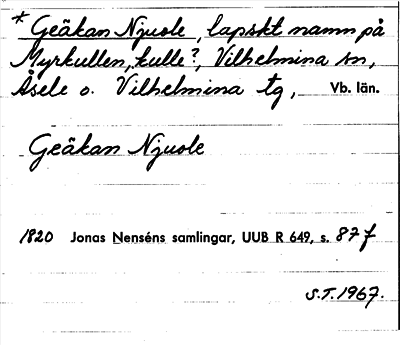 * Geäkan Njuole, lapskt namn på
Myrkullen, kulle?, Vilhelmina sn,
Åsele o. Vilhelmina tg, Vb. län.
Geäkan Njuole
1820 Jonas Nenséns samlingar, UUB R 649, s. 87 f
S.T. 1967.